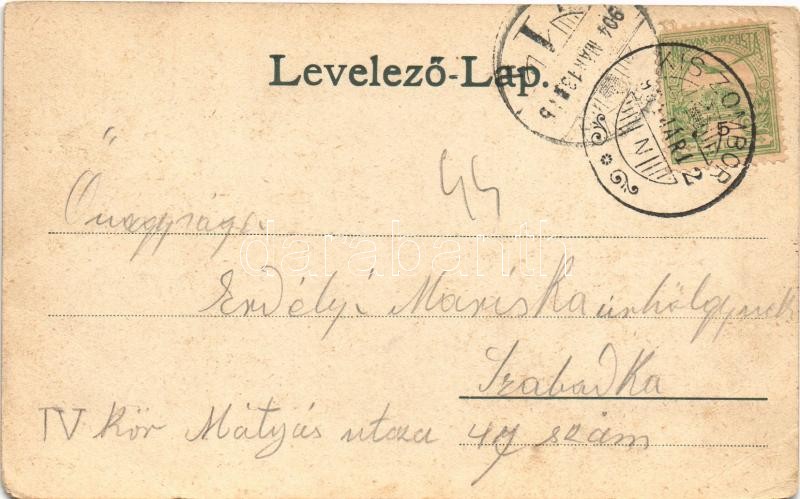 Levelező-Lap.
904 MÁR 13
KISZOMBOR
904 MÁR 12
MAGYAR KIR. POSTA
5
N
44
Őnagysága
darabanth
Erdélyi Mariska úrhölgynek
Szabadka
IV Kör Mátyás utcza 47 szám